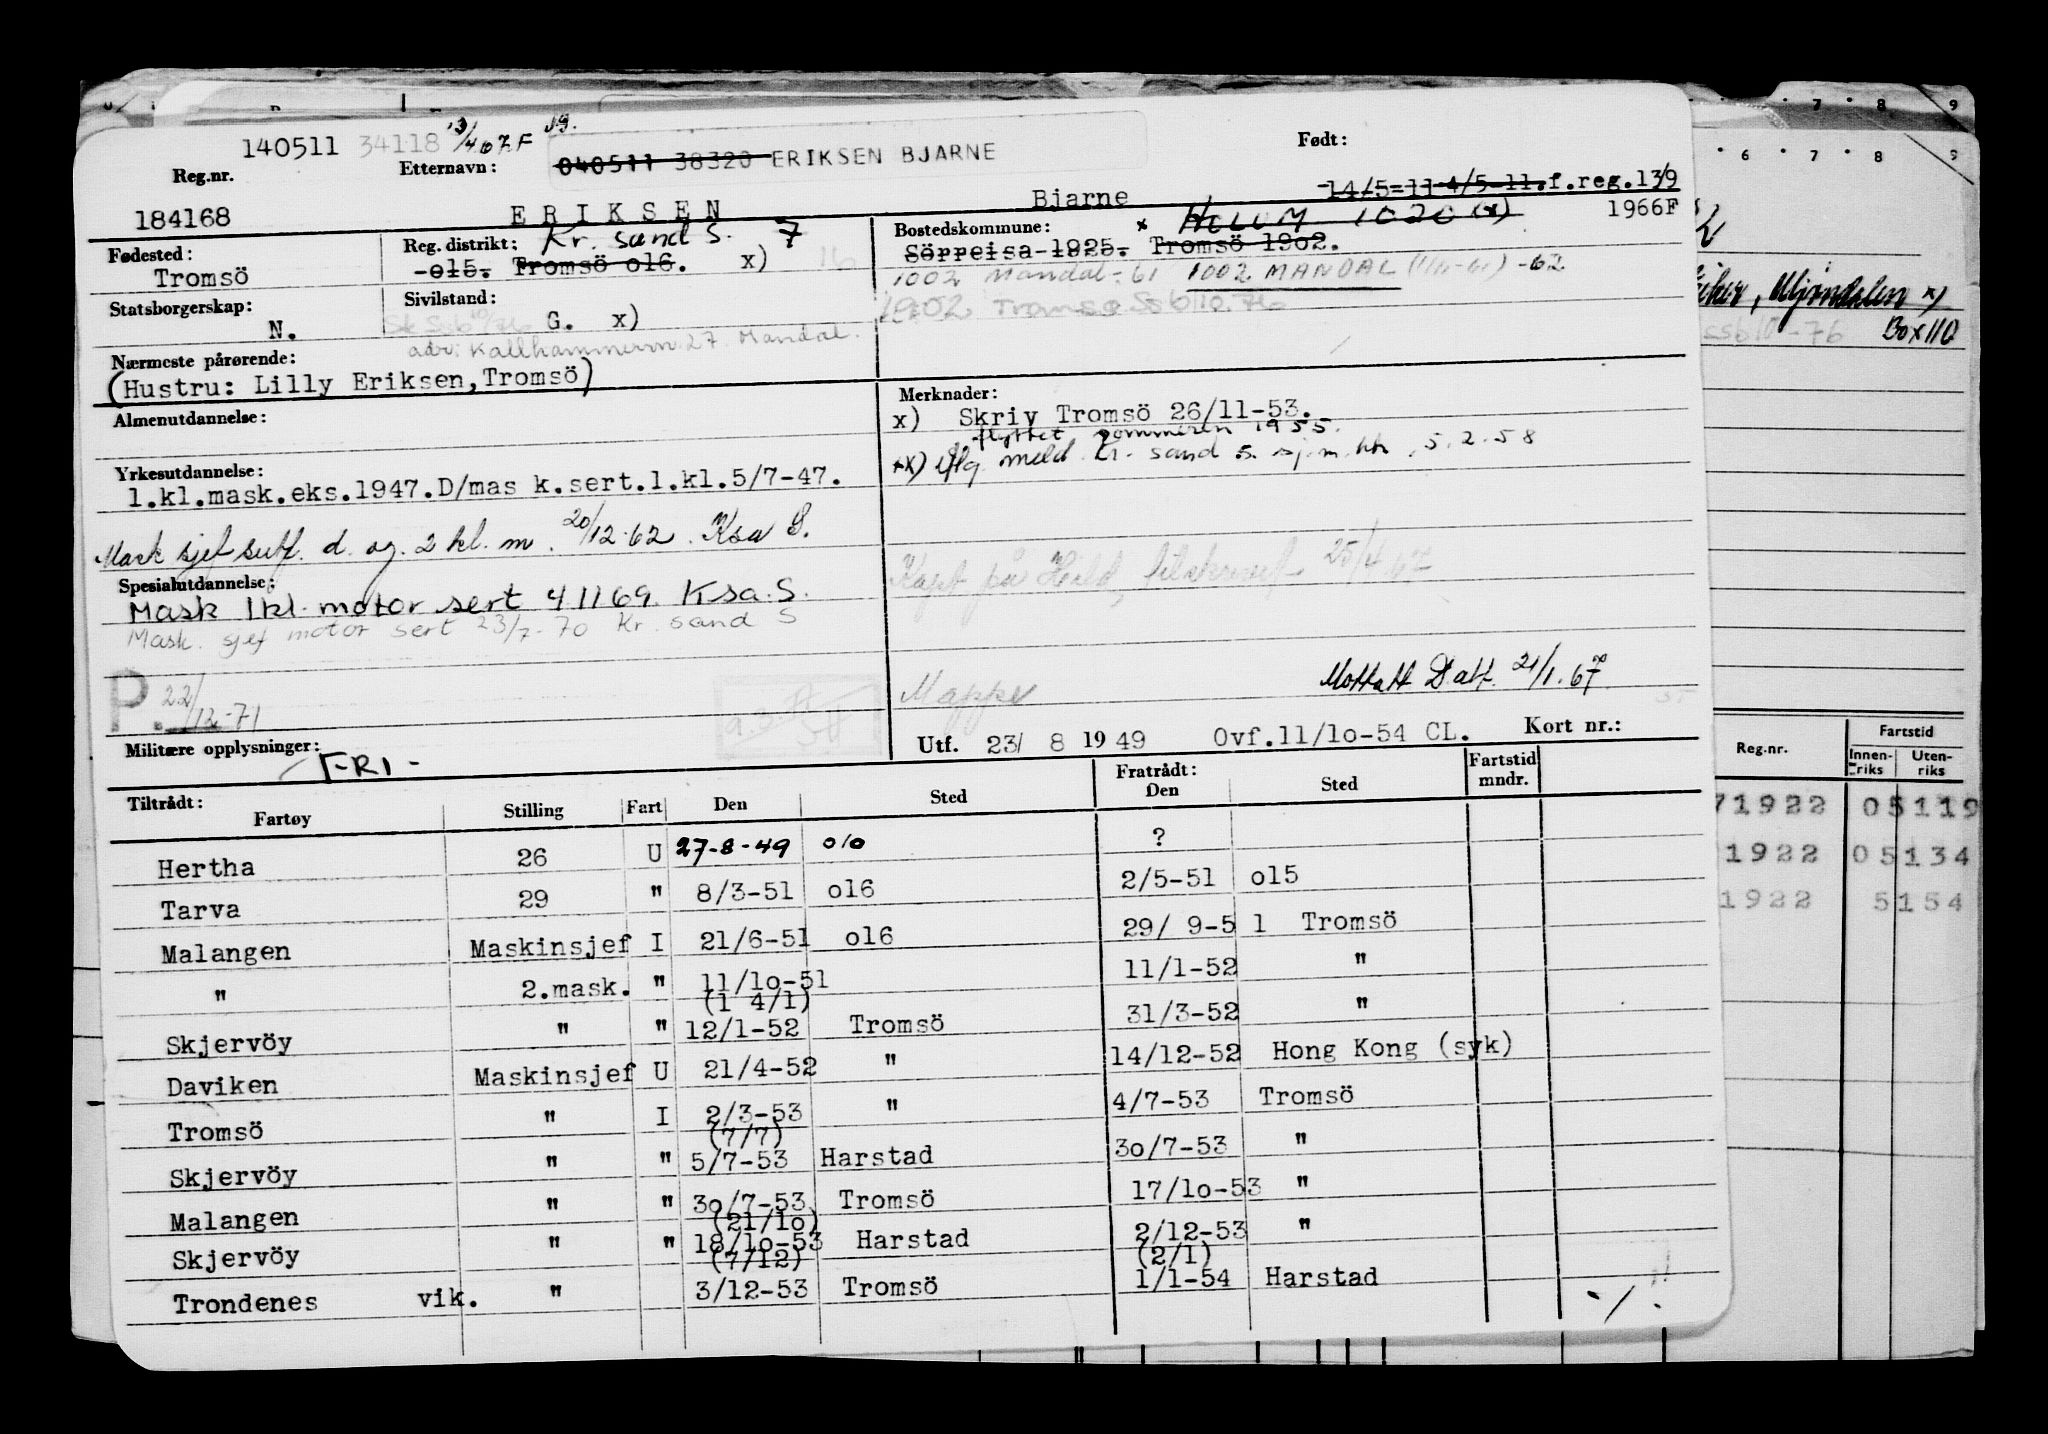 140511 34118 13/4 67 F
Reg.nr.
Etternavn:
040511 38320 ERIKSEN BJARNE
Født:
184168
E R I K S E N
Bjarne
14/5-11 4/5-11.f.reg.13/9
1966F
Fødested:
Tromsö
Reg. distrikt: Kr. sand S. 7
-o15. Tromsö o16. x) 16
Bostedskommune: x HOLUM 1020 (x)
Sörreisa 1925. Tromsö 19o2.
1002 Mandal-61 1002 MANDAL -62
1902 Tromsø Ssb 10.76
Statsborgerskap:
N.
Sivilstand:
G. x)
adr: Kallhammeren 27. Mandal.
Nærmeste pårørende:
(Hustru: Lilly Eriksen,Tromsö)
Almenutdannelse:
Merknader:
x) Skriv Tromsö 26/11-53.
flyttet sommeren 1955.
xx) iflg. meld. Kr. sand S. sj.m.ktr. 5.2.58
Yrkesutdannelse:
1.kl.mask.eks.1947.D/mas k.sert.1.kl.5/7-47.
Mask sjef sert. d. og 2 kl. m. 20/12-62. Ksa S.
Spesialutdannelse:
Mask 1kl. motor sert 4 11 69. Ksa. S.
Mask. sjef motor sert 23/7-70 Kr. sand S
P. 22/12-71
25/4 67
Mappe
Mottatt D.att. 21/1.67
Militære opplysninger:
FRI -
Utf. 23/ 8 1949 Ovf.11/1o-54 CL. Kort nr.:
Tiltrådt:
Fratrådt:
Fartøy Stilling Fart Den Sted Den Sted Fartstid mndr.
Hertha 26 U 27-8-49 010 ?
Tarva 29 " 8/3-51 o16 2/5-51 o15
Malangen Maskinsjef I 21/6-51 o16 29/ 9-5 1 Tromsö
" 2.mask. " 11/1o-51 11/1-52 "
(1 4/1)
Skjervöy " " 12/1-52 Tromsö 31/3-52 "
Daviken Maskinsjef U 21/4-52 " 14/12-52 Hong Kong (syk)
Tromsö " I 2/3-53 " 4/7-53 Tromsö
(7/7)
Skjervöy " " 5/7-53 Harstad 3o/7-53 "
Malangen " " 3o/7-53 Tromsö 17/1o-53 "
(21/1o)
Skjervöy " " 18/1o-53 Harstad 2/12-53 "
(7/12) (2/1)
Trondenes vik. " 3/12-53 Tromsö 1/1-54 Harstad
7 8 9
6 7 8 9
Mjøndalen x)
ssb 10-76 Box 110
Reg.nr.
Fartstid
Innen-
riks
Uten-
riks
71922 05119
1922 05134
1922 5154